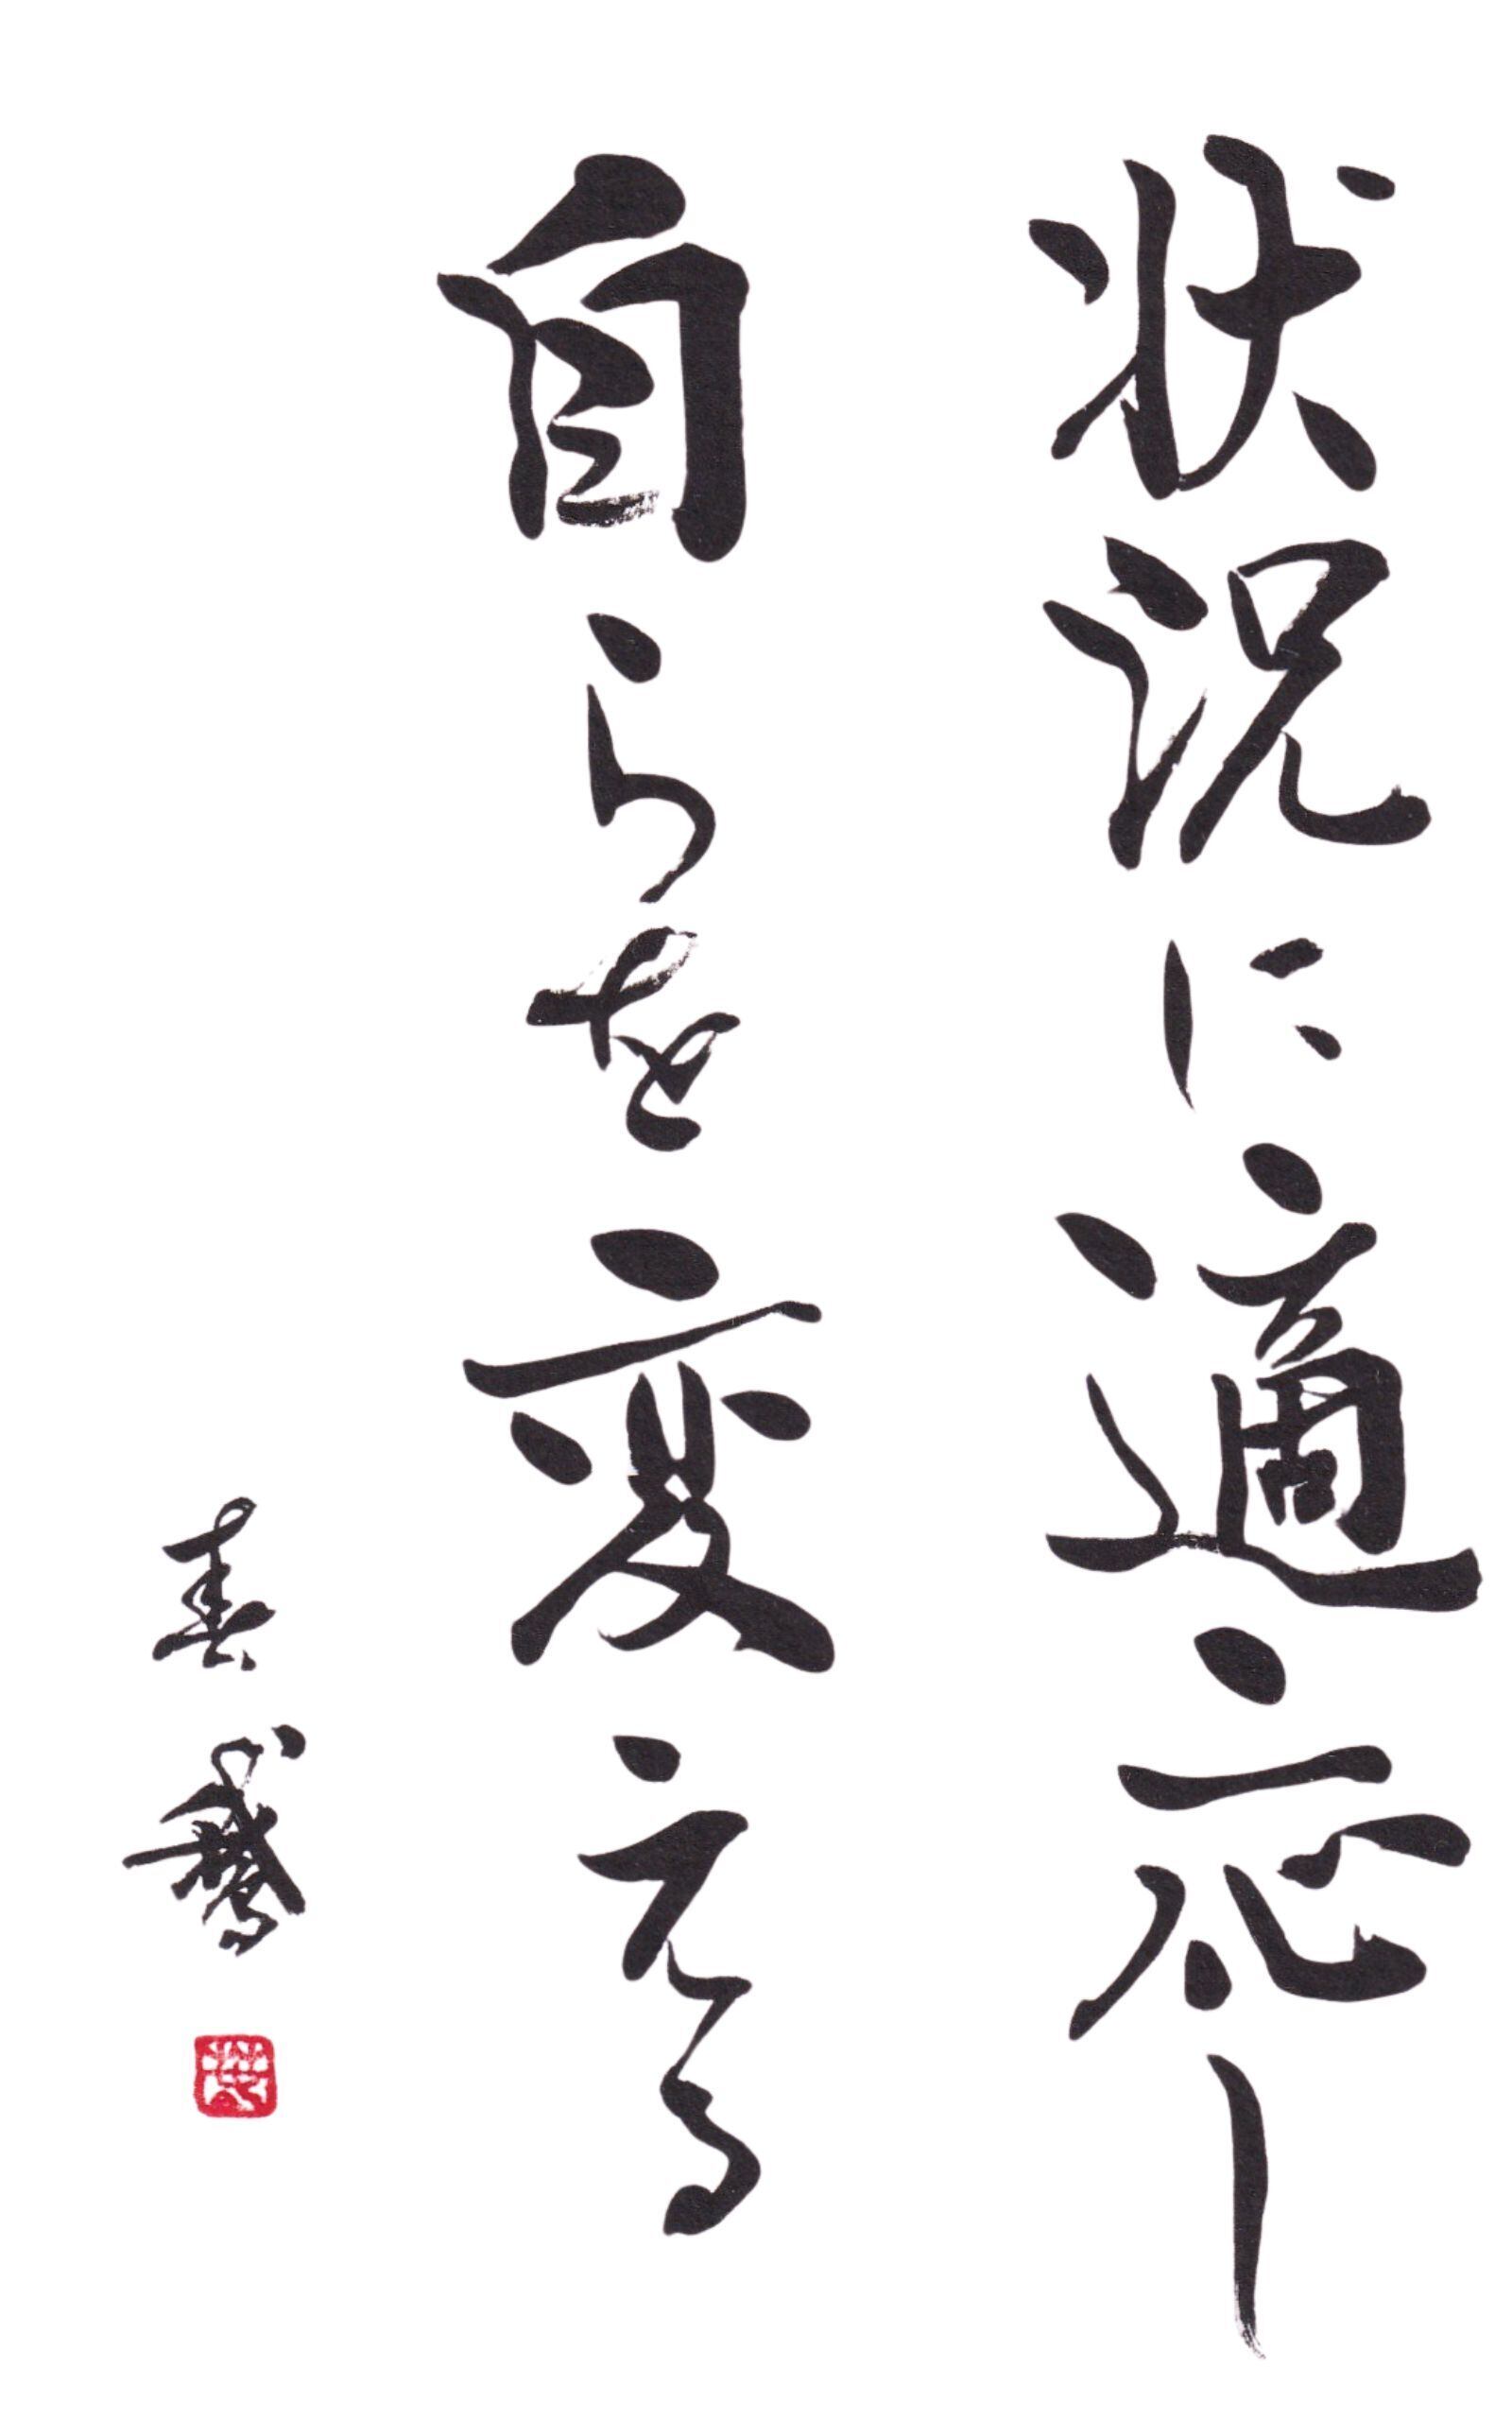 状況に適応し
自らを変える
春鵞